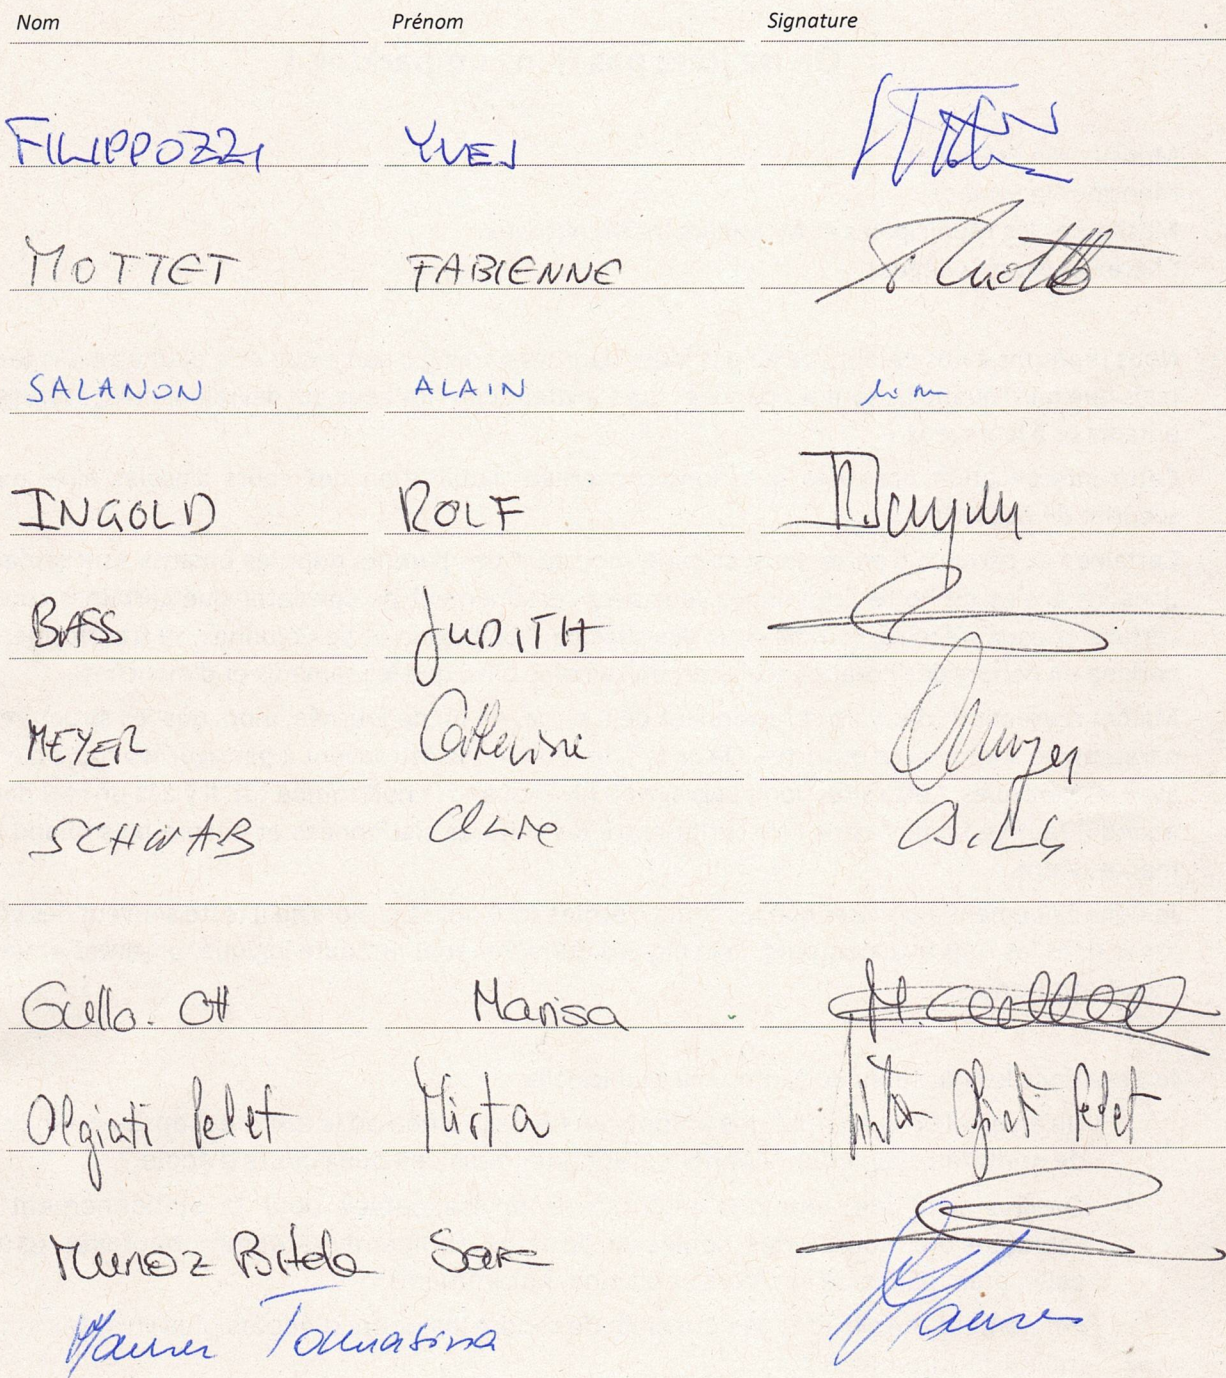 Nom Prénom Signature
FILIPPOZZI YVES
MOTTET FABIENNE
SALANON ALAIN
INGOLD ROLF
BASS JUDITH
MEYER Catherine Meyer
SCHWAB
Gullo. Ott Marisa
Olgiati Pelet Mirta Mirta Olgiati Pelet
Munoz Bitelo Sara
Maurer Tommasina Maurer